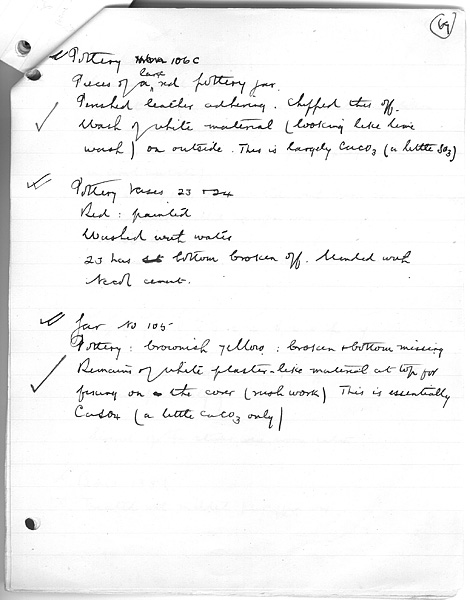 69
Pottery 106C
Pieces of a large red pottery jar.
Perished leather adhering. Chipped this off.
Wash of white material (looking like lime
wash) on outside. This is largely CaCO3 (a little SO3)
Pottery Vases 23 + 24
Red : painted
Washed with water
23 has bottom broken off. Mended with
Necol cement.
Jar No 105
Pottery : brownish yellow : broken & bottom missing
Remains of white plaster-like material at top for
fixing on the cover (rushwork) This is essentially
CaSO4 (a little CaCO3 only)